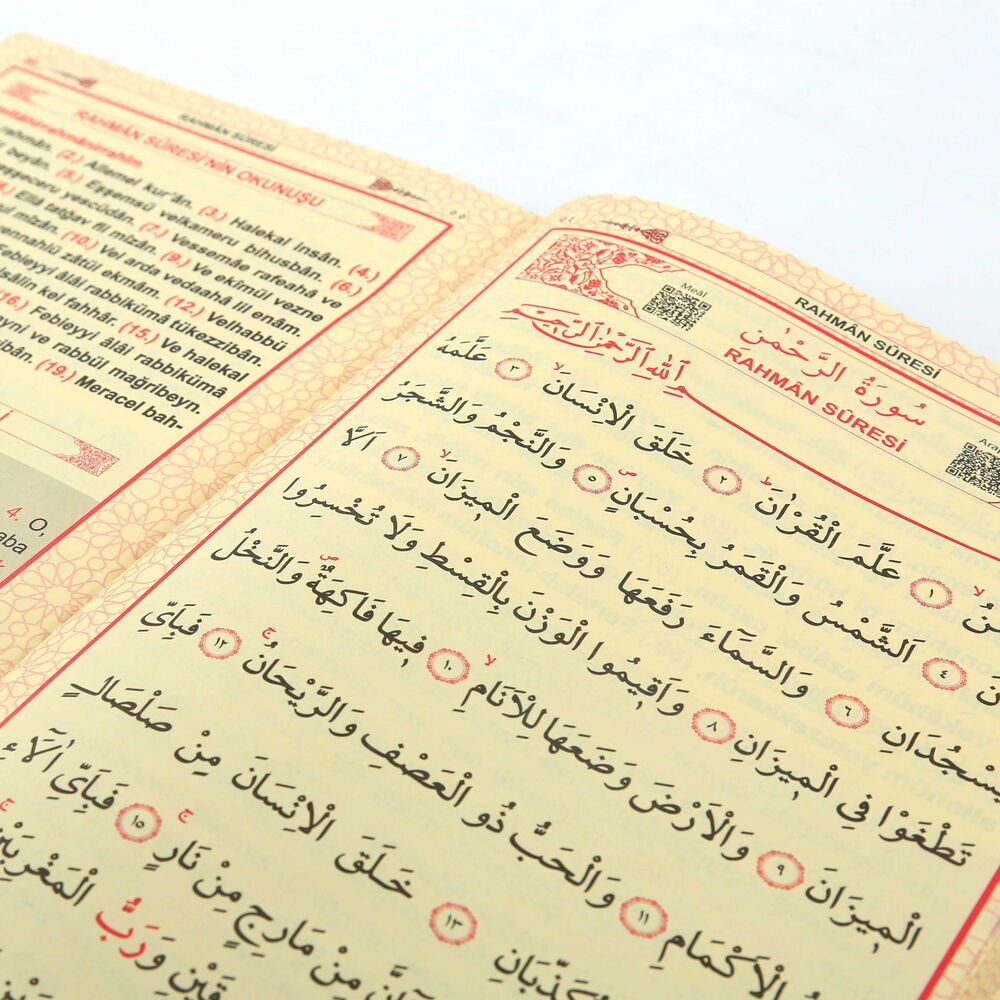 RAHMÂN SÛRESİ
RAHMÂN SÛRESİ'NİN OKUNUŞU
rahmân. (2.) Allemel kur'ân. (3.) Halekal insân. (4.)
beyân. (5.) Eşşemsü velkameru bihusbân. (6.)
yescüdân. (7.) Vessemâe rafeahâ ve
Ellâ tatğav fil mîzân. (9.) Ve ekîmül vezne
mîzân. (10.) Vel arda vedaahâ lil enâm.
zâtül ekmâm. (12.) Velhabbü
Febieyyi âlâi rabbikümâ tükezzibân.
kel fahhâr. (15.) Ve halekal
(16.) Febieyyi âlâi rabbikümâ
ve rabbül mağribeyn.
(19.) Meracel bah-
4. O,
RAHMÂN SÛRESİ
Meâl
سُورَةُ الرَّحْمٰنِ
RAHMÂN SÛRESİ
اللّٰهِ الرَّحْمٰنِ الرَّحِيمِ
١ عَلَّمَ الْقُرْاٰنَ ٢ خَلَقَ الْاِنْسَانَ ٣ عَلَّمَهُ
٤ اَلشَّمْسُ وَالْقَمَرُ بِحُسْبَانٍ ٥ وَالنَّجْمُ وَالشَّجَرُ
يَسْجُدَانِ ٦ وَالسَّمَٓاءَ رَفَعَهَا وَوَضَعَ الْمٖيزَانَ ٧ اَلَّا
تَطْغَوْا فِي الْمٖيزَانِ ٨ وَاَقٖيمُوا الْوَزْنَ بِالْقِسْطِ وَلَا تُخْسِرُوا
الْمٖيزَانَ ٩ وَالْاَرْضَ وَضَعَهَا لِلْاَنَامِ ١٠ فٖيهَا فَاكِهَةٌ وَالنَّخْلُ
الْاَكْمَامِ ١١ وَالْحَبُّ ذُو الْعَصْفِ وَالرَّيْحَانُ ١٢ فَبِاَيِّ
تُكَذِّبَانِ ١٣ خَلَقَ الْاِنْسَانَ مِنْ صَلْصَالٍ
مِنْ مَارِجٍ مِنْ نَارٍ ١٥ فَبِاَيِّ اٰلَٓاءِ
وَرَبُّ الْمَغْرِبَيْنِ